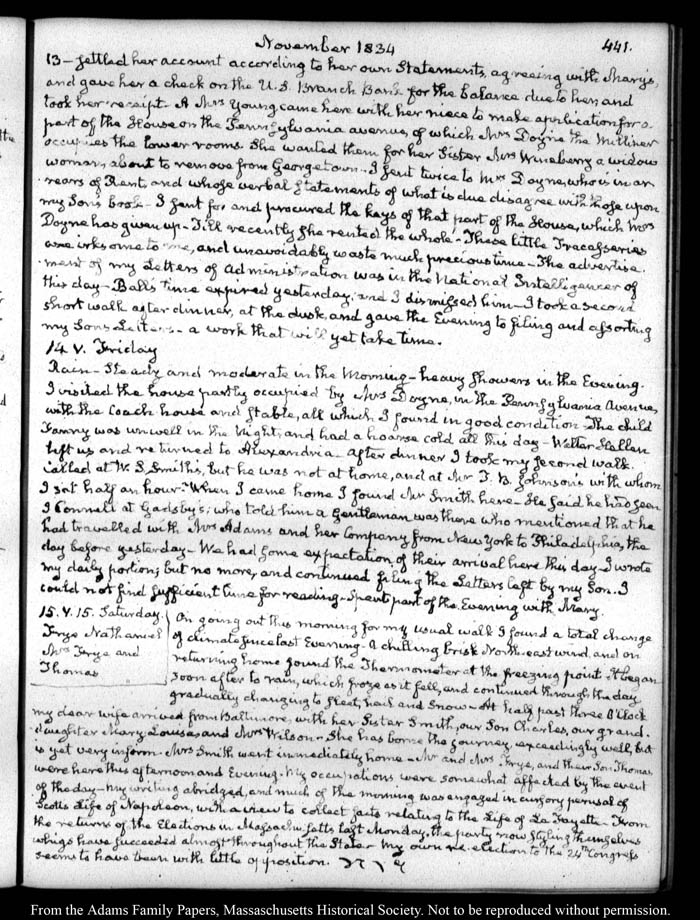 November 1834
441.
13 – settled her account according to her own Statements, agreeing with Mary's,
and gave her a check on the U.S. Branch Bank for the balance due to her, and
took her receipt. A Mrs Young came here with her niece to make application for a
part of the House on the Pennsylvania avenue, of which Mrs Doyne the Milliner
occupies the lower rooms. She wanted them for her Sister Mrs Wineberry a widow
woman, about to remove from Georgetown – I sent twice to Mrs Doyne, who is in ar-
rears of Rent, and whose verbal Statements of what is due disagree with those upon
my Sons book – I sent for and procured the keys of that part of the House, which Mrs
Doyne has given up – Till recently she rented the whole – These little Tracasseries
are irksome to me, and unavoidably waste much precious time – The advertise-
ment of my Letters of Administration was in the National Intelligencer of
this day – Ball's time expired yesterday, and I dismissed him – I took a second
short walk after dinner, at the dusk, and gave the Evening to filing and assorting
my Sons Letters – a work that will yet take time.
14 V. Friday
Rain – Steady and moderate in the Morning – heavy showers in the Evening.
I visited the house partly occupied by Mrs Doyne, in the Pennsylvania Avenue,
with the Coach house and Stable, all which I found in good condition – The child
Fanny was unwell in the Night, and had a hoarse cold all this day – Walter Hellen
left us and returned to Alexandria – after dinner I took my second walk.
Called at W. S. Smith's, but he was not at home, and at Mr T. B. Johnson's with whom
I sat half an hour – When I came home I found Mr Smith here – He said he had seen
I Connell at Gadsby's; who told him a Gentleman was there who mentioned that he
had travelled with Mrs Adams and her Company from New York to Philadelphia, the
day before yesterday – We had some expectation of their arrival here this day – I wrote
my daily portion, but no more, and continued filing the Letters left by my Son. I
could not find sufficient time for reading – Spent part of the Evening with Mary.
15. V. 15. Saturday.
Frye Nathaniel
Mrs Frye and
Thomas
On going out this morning for my usual walk I found a total change
of climate since last Evening – A chilling brisk North-east wind, and on
returning home found the Thermometer at the freezing point. It began
soon after to rain, which froze as it fell, and continued through the day
gradually changing to sleet, hail and Snow – At half past three O'Clock
my dear wife arrived from Baltimore, with her Sister Smith, our Son Charles, our grand-
daughter Mary Louisa, and Mrs Wilson – She has borne the journey, exceedingly well, but
is yet very infirm. Mrs Smith went immediately home – Mr and Mrs Frye, and their Son Thomas
were here this afternoon and Evening. My occupations were somewhat affected by the event
of the day – my writing abridged, and much of the morning was engaged in cursory perusal of
Scotts Life of Napoleon, with a view to collect facts relating to the Life of La Fayette – From
the returns of the Elections in Massachusetts last Monday, the party now styling themselves
whigs have succeeded almost throughout the State – My own re-election to the 24th Congress
seems to have been with little opposition.
From the Adams Family Papers, Massachusetts Historical Society. Not to be reproduced without permission.